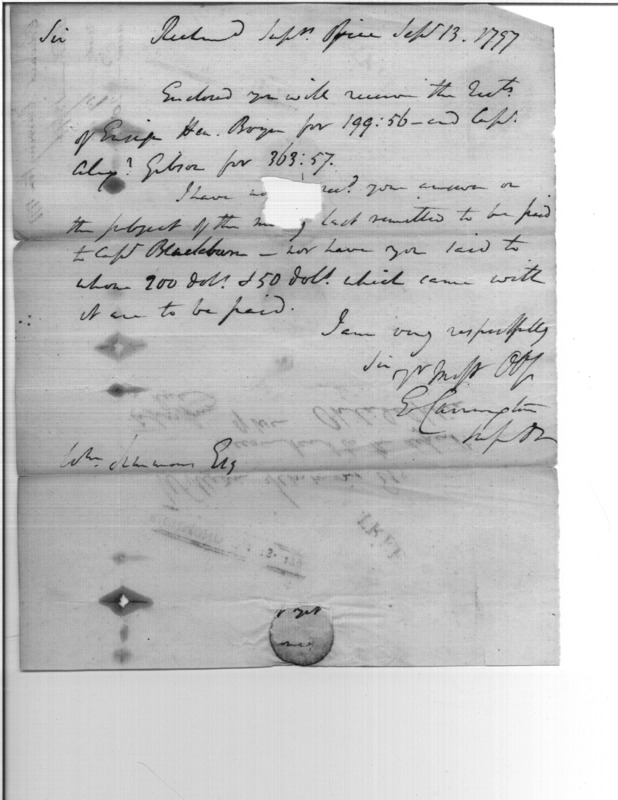 Sir Richmond Suprs. Office Sept. 13. 1797
Enclosed you will receive the Rects.
of Ensign Hen. Bowyer for 199:56 - and Capt.
Alexr. Gibson for 363:57.
I have no recd. your answer on
the subject of the m y last remitted to be paid
to Capt. Blackburn - nor have you said to
whom 200 dolls. & 50 dolls. which came with
it are to be paid.
I am very respectfully
Sir yr Most Obt
E Carrington
Wm. Simmons Esq